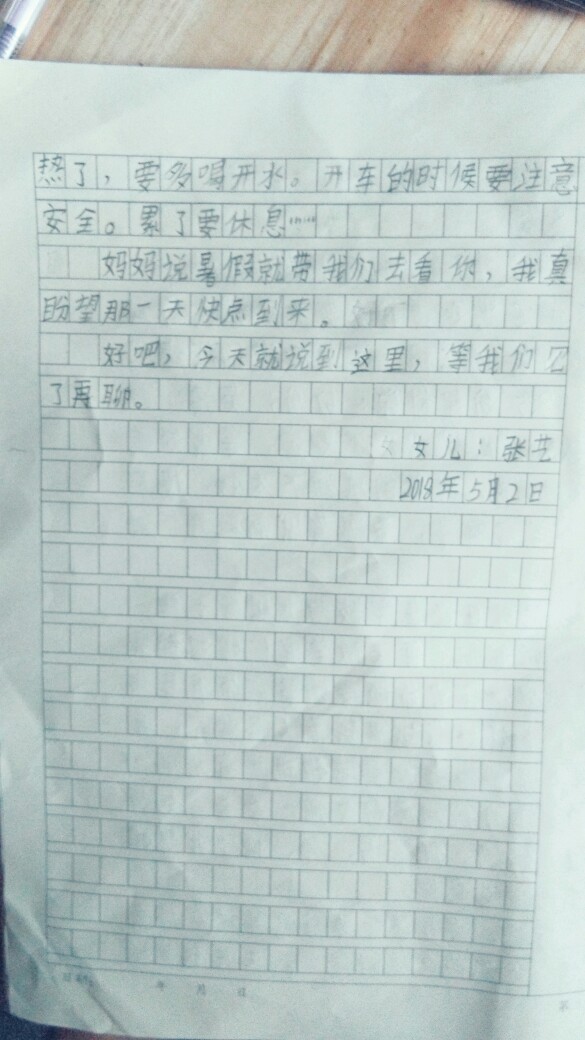 热了，要多喝开水。开车的时候要注意
安全。累了要休息……
妈妈说暑假就带我们去看你，我真
盼望那一天快点到来。
好吧，今天就说到这里，等我们见
了再聊。
女儿：张艺
2018年5月2日
年 月 日
第